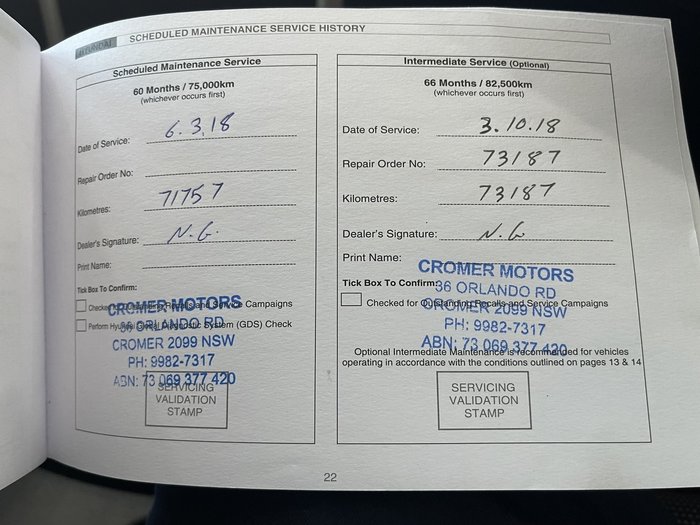 HYUNDAI
SCHEDULED MAINTENANCE SERVICE HISTORY
Scheduled Maintenance Service
60 Months / 75,000km
(whichever occurs first)
Date of Service: 6.3.18
Repair Order No:
Kilometres: 71757
Dealer's Signature: N.G.
Print Name:
Tick Box To Confirm:
Checked for Outstanding Recalls and Service Campaigns
Perform Hyundai Diagnostic System (GDS) Check
CROMER MOTORS
36 ORLANDO RD
CROMER 2099 NSW
PH: 9982-7317
ABN: 73 069 377 420
SERVICING
VALIDATION
STAMP
Intermediate Service (Optional)
66 Months / 82,500km
(whichever occurs first)
Date of Service: 3.10.18
Repair Order No: 73187
Kilometres: 73187
Dealer's Signature: N.G
Print Name:
Tick Box To Confirm:
Checked for Outstanding Recalls and Service Campaigns
CROMER MOTORS
36 ORLANDO RD
CROMER 2099 NSW
PH: 9982-7317
ABN: 73 069 377 420
Optional Intermediate Maintenance is recommended for vehicles
operating in accordance with the conditions outlined on pages 13 & 14
SERVICING
VALIDATION
STAMP
22